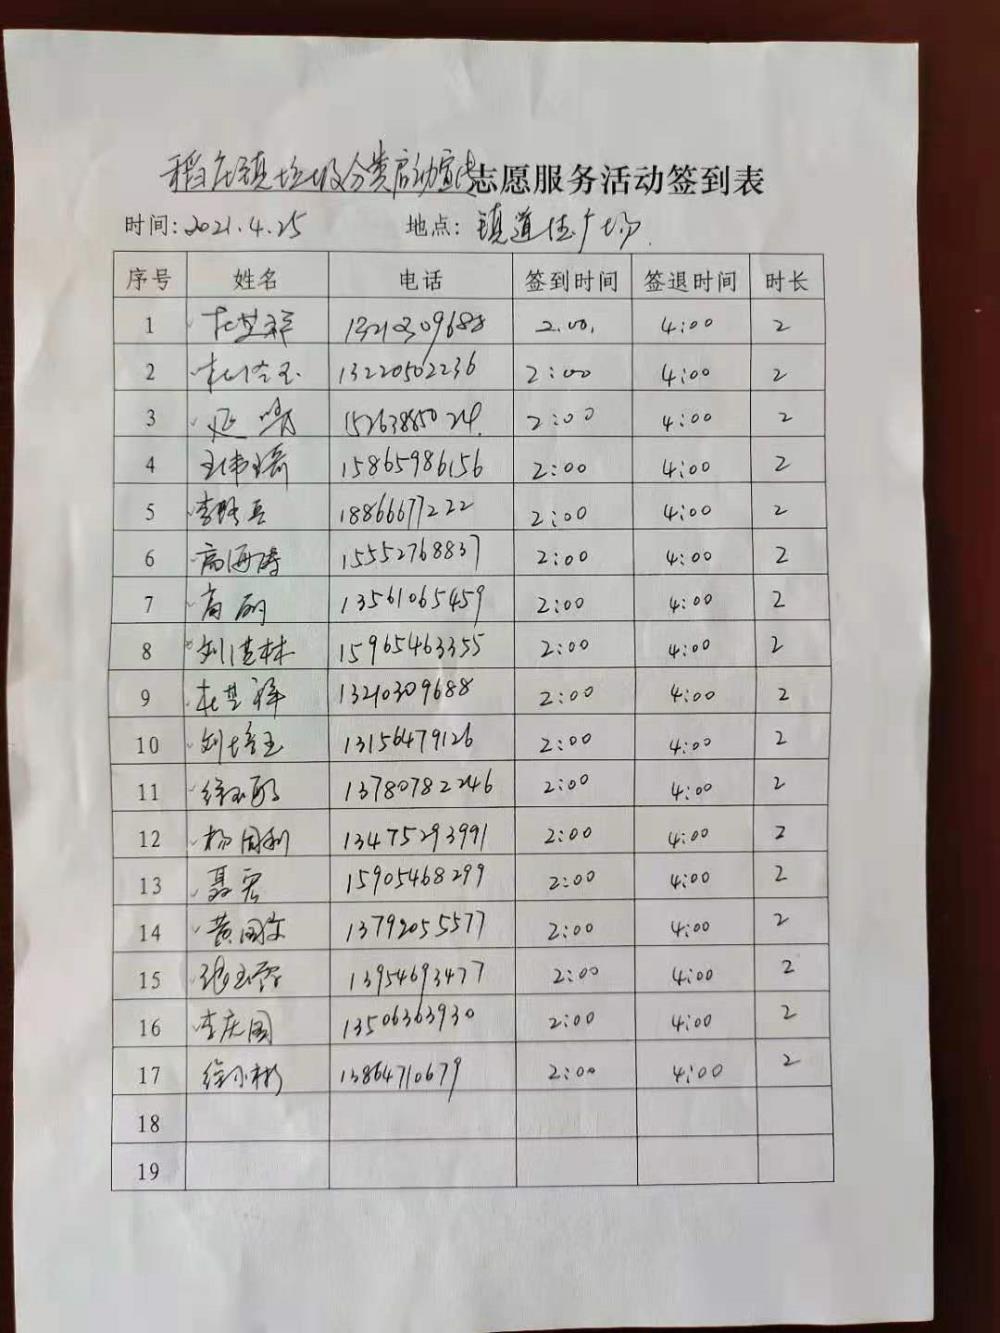 稻庄镇垃圾分类启动宣传志愿服务活动签到表
时间:2021.4.25 地点:镇道德广场
序号 姓名 电话 签到时间 签退时间 时长
1 杜楚祥 13210309688 2:00 4:00 2
2 杜 13220502236 2:00 4:00 2
3 延 15263885024 2:00 4:00 2
4 王伟 15865986156 2:00 4:00 2
5 李 18866677222 2:00 4:00 2
6 高海涛 15552768837 2:00 4:00 2
7 高丽 13561065459 2:00 4:00 2
8 刘洪林 15965463355 2:00 4:00 2
9 杜楚祥 13210309688 2:00 4:00 2
10 刘培玉 13156479126 2:00 4:00 2
11 徐 13780782246 2:00 4:00 2
12 杨国利 13475293991 2:00 4:00 2
13 聂宏 15905468299 2:00 4:00 2
14 黄国文 13792055577 2:00 4:00 2
15 13954693477 2:00 4:00 2
16 李庆国 13506363930 2:00 4:00 2
17 徐小彬 13864710679 2:00 4:00 2
18
19